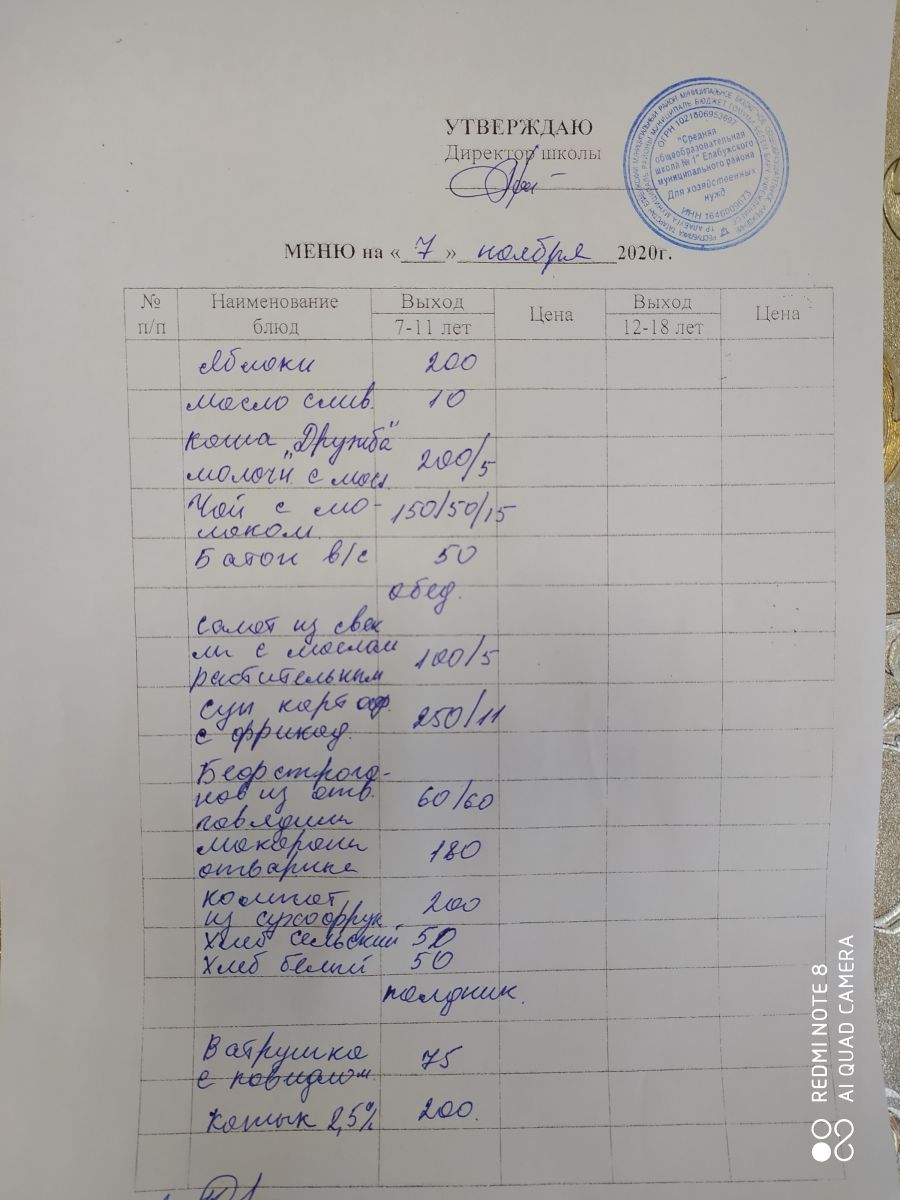 УТВЕРЖДАЮ
Директор школы
ОГРН 1021606953697
"Средняя
общеобразовательная
школа № 1" Елабужского
муниципального района
Для хозяйственных
нужд
МЕНЮ на « 7 » ноября 2020г.
№ п/п Наименование блюд Выход 7-11 лет Цена Выход 12-18 лет Цена
Яблоки 200
масло слив. 10
каша "Дружба"
молочн. с масл. 200/5
Чай с мо-
локом. 150/50/15
Батон в/с 50
обед.
салат из свек
лы с маслом
растительным 100/5
суп картоф.
с фрикад. 250/11
Бефстрога-
нов из отв.
говядины 60/60
макароны
отварные 180
компот
из сухофрук 200
Хлеб сельский 50
Хлеб белый 50
полдник.
Ватрушка
с повидлом. 75
Катык 2,5% 200.
REDMI NOTE 8
AI QUAD CAMERA